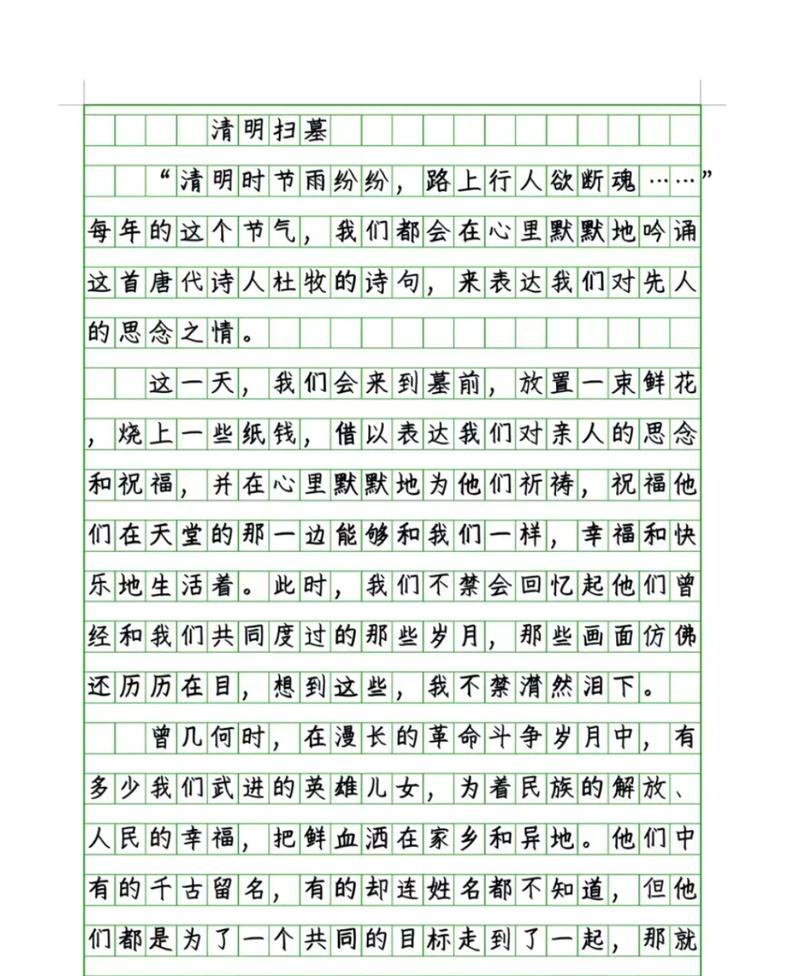 清明扫墓
“清明时节雨纷纷，路上行人欲断魂……”
每年的这个节气，我们都会在心里默默地吟诵
这首唐代诗人杜牧的诗句，来表达我们对先人
的思念之情。
这一天，我们会来到墓前，放置一束鲜花
，烧上一些纸钱，借以表达我们对亲人的思念
和祝福，并在心里默默地为他们祈祷，祝福他
们在天堂的那一边能够和我们一样，幸福和快
乐地生活着。此时，我们不禁会回忆起他们曾
经和我们共同度过的那些岁月，那些画面仿佛
还历历在目，想到这些，我不禁潸然泪下。
曾几何时，在漫长的革命斗争岁月中，有
多少我们武进的英雄儿女，为着民族的解放、
人民的幸福，把鲜血洒在家乡和异地。他们中
有的千古留名，有的却连姓名都不知道，但他
们都是为了一个共同的目标走到了一起，那就